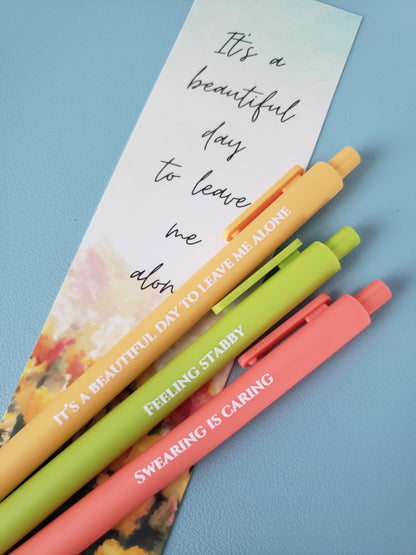 It's a
beautiful
day
to leave
me
alon
IT'S A BEAUTIFUL DAY TO LEAVE ME ALONE
FEELING STABBY
SWEARING IS CARING